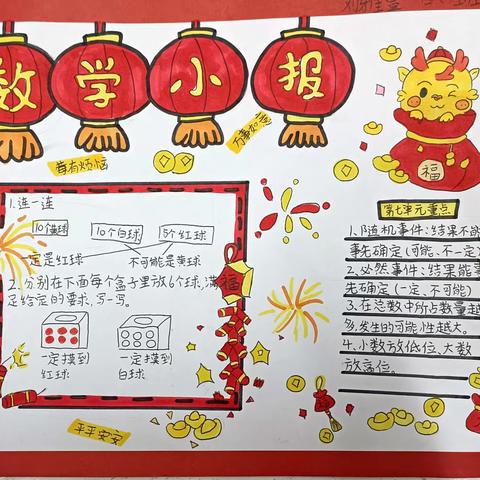 数学小报
万事如意
昔有烦恼
1.连一连
10个黄球
10个白球
5个红球
一定是红球
不可能是黄球
2.分别在下面每个盒子里放6个球,满
足给定的要求,写一写。
一定摸到
红球
一定摸到
白球
平平安安
福
第七单元重点
1、随机事件:结果不能
事先确定(可能、不一定)
2、必然事件:结果能事
先确定(一定、不可能)
3、在总数中所占数量越
多,发生的可能性越大。
4、小数放低位、大数
放高位。